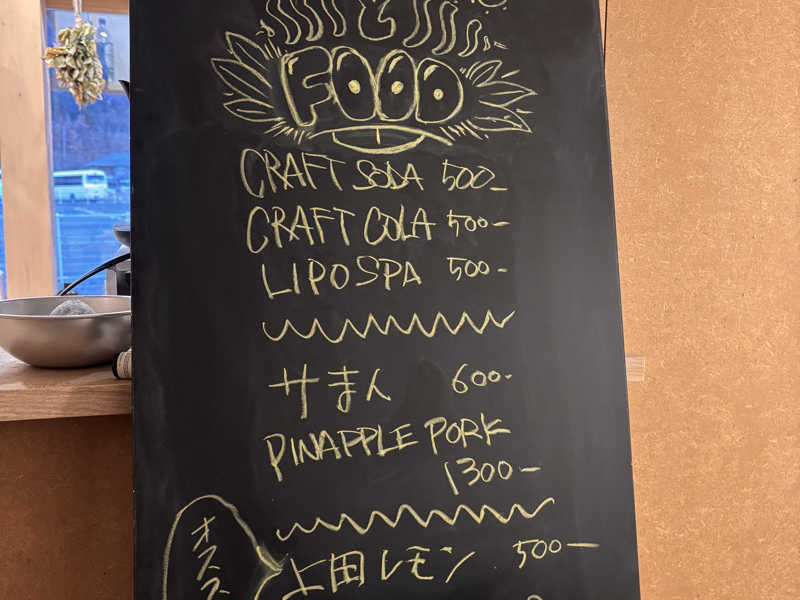 FOOD
CRAFT SODA 500-
CRAFT COLA 500-
LIPOSPA 500-
サまん 600-
PINAPPLE PORK
1300-
オススメ
上田レモン 500-